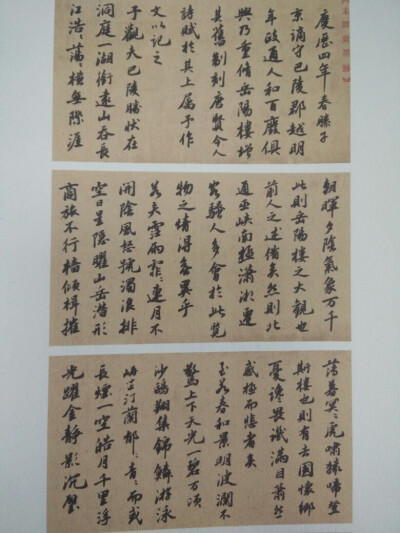 慶歷四年春滕子
京謫守巴陵郡越明
年政通人和百廢俱
興乃重脩岳陽樓增
其舊制刻唐賢今人
詩賦於其上属予作
文以記之
予觀夫巴陵勝狀在
洞庭一湖銜遠山吞長
江浩〻蕩〻橫無際涯
朝暉夕陰氣象万千
此則岳陽樓之大觀也
前人之述備矣然則北
通巫峽南極瀟湘遷
客騷人多會於此覽
物之情得無異乎
若夫霪雨霏〻連月不
開陰風怒號濁浪排
空日星隱曜山岳潛形
商旅不行檣傾楫摧
薄暮冥〻虎嘯猿啼登
斯樓也則有去國懷鄉
憂讒畏譏滿目蕭然
感極而悲者矣
至若春和景明波瀾不
驚上下天光一碧万頃
沙鷗翔集錦鱗游泳
岸芷汀蘭郁〻青〻而或
長煙一空皓月千里浮
光躍金靜影沉璧